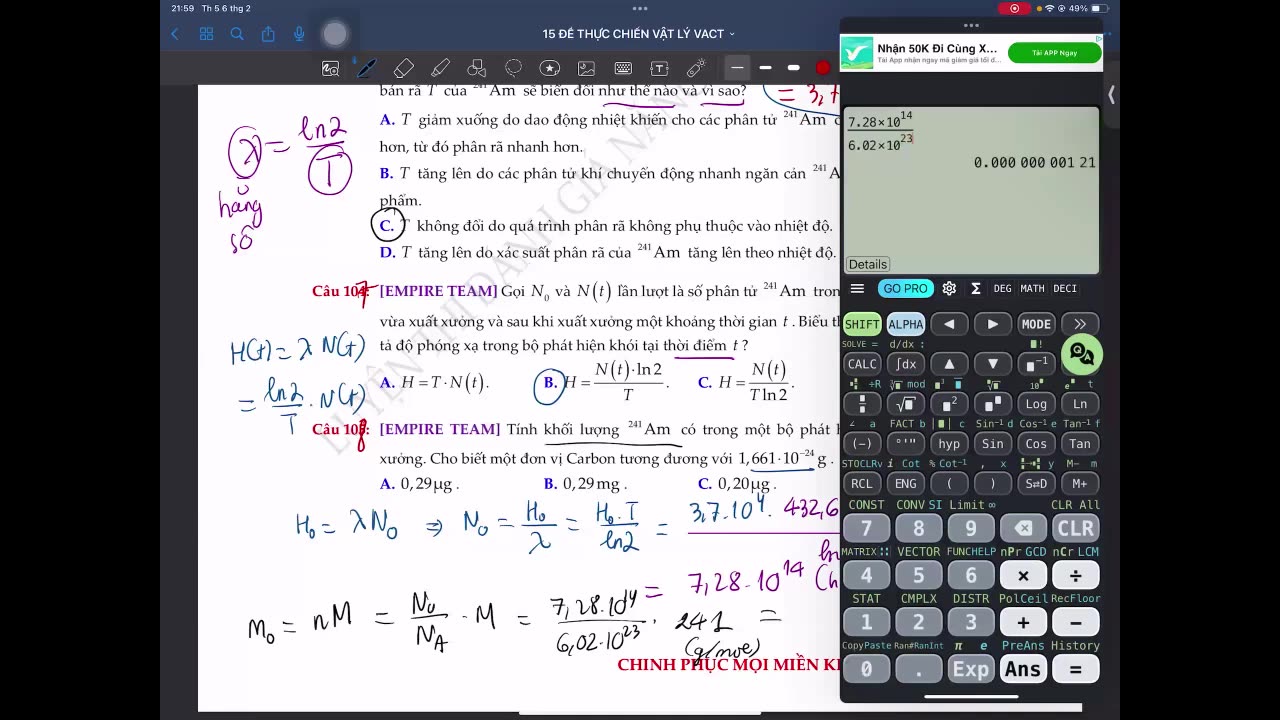 21:59 Th 5 6 thg 2
49%
15 ĐỀ THỰC CHIẾN VẬT LÝ VACT
bán rã T của 241Am sẽ biến đổi như thế nào và vì sao?
= 3,7
A. T giảm xuống do dao động nhiệt khiến cho các phân tử 241Am
hơn, từ đó phân rã nhanh hơn.
B. T tăng lên do các phân tử khí chuyển động nhanh ngăn cản 241A
phẩm.
C. T không đổi do quá trình phân rã không phụ thuộc vào nhiệt độ.
D. T tăng lên do xác suất phân rã của 241Am tăng lên theo nhiệt độ.
λ = ln2/T
hằng
số
LUYỆN THI ĐÁNH GIÁ NĂNG
Câu 104: 7 [EMPIRE TEAM] Gọi N0 và N(t) lần lượt là số phân tử 241Am tron
vừa xuất xưởng và sau khi xuất xưởng một khoảng thời gian t. Biểu th
tả độ phóng xạ trong bộ phát hiện khói tại thời điểm t?
A. H = T·N(t). B. H = N(t)·ln2/T C. H = N(t)/T ln2.
H(t) = λ N(t)
= ln2/T · N(t)
Câu 105: 8 [EMPIRE TEAM] Tính khối lượng 241Am có trong một bộ phát h
xưởng. Cho biết một đơn vị Carbon tương đương với 1,661·10^-24 g.
A. 0,29μg. B. 0,29mg. C. 0,20μg.
H0 = λN0 ⇒ N0 = H0/λ = H0·T/ln2 = 3,7.10^4. 432,6
= 7,28.10^14
m0 = nM = N0/NA · M = 7,28.10^14/6,02.10^23 · 241 =
(g/mol)
CHINH PHỤC MỌI MIỀN
Nhận 50K Đi Cùng X...
Tải APP Ngay
7.28×10^14
6.02×10^23
0.000 000 001 21
Details
GO PRO Σ DEG MATH DECI
SHIFT ALPHA ◀ ▶ MODE
SOLVE = d/dx :
CALC ∫dx ▲ ▼
÷R mod
Log Ln
FACT Sin-1 d Cos-1 e Tan-1 f
(−) °'" hyp Sin Cos Tan
STO CLRv i Cot % Cot-1 , x y M− m
RCL ENG ( ) S⇄D M+
CONST CONV SI Limit ∞ CLR All
7 8 9 CLR
MATRIX VECTOR FUNC HELP nPr GCD nCr LCM
4 5 6 × ÷
STAT CMPLX DISTR Pol Ceil Rec Floor
1 2 3 + −
Copy Paste Ran# RanInt π e PreAns History
0 . Exp Ans =